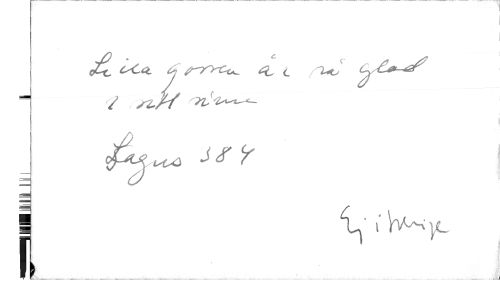 Lilla gossen är så glad
i sitt sinne
Lagus 384
Ej i Sverige